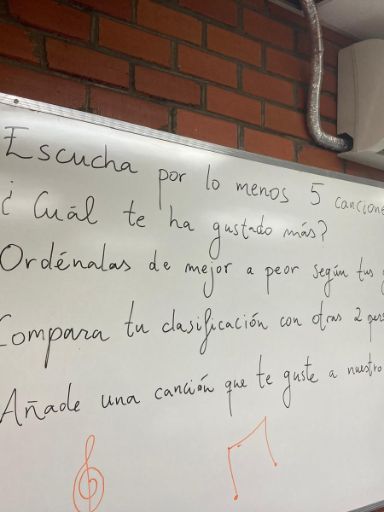 Escucha por lo menos 5 cancione
¿Cuál te ha gustado más?
Ordénalas de mejor a peor según tus
Compara tu clasificación con otras 2 per
Añade una canción que te guste a nuestro